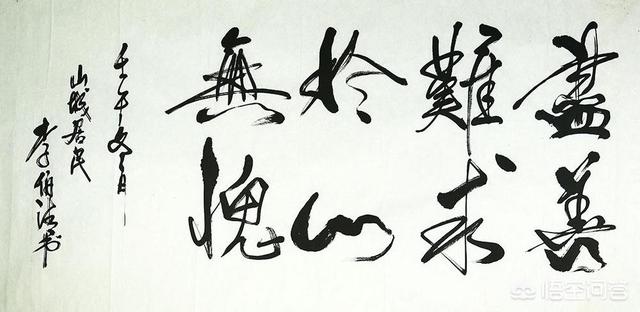 盡善
難求
於心
無愧
壬午 月
山城居民
李伯 书
悟空问答